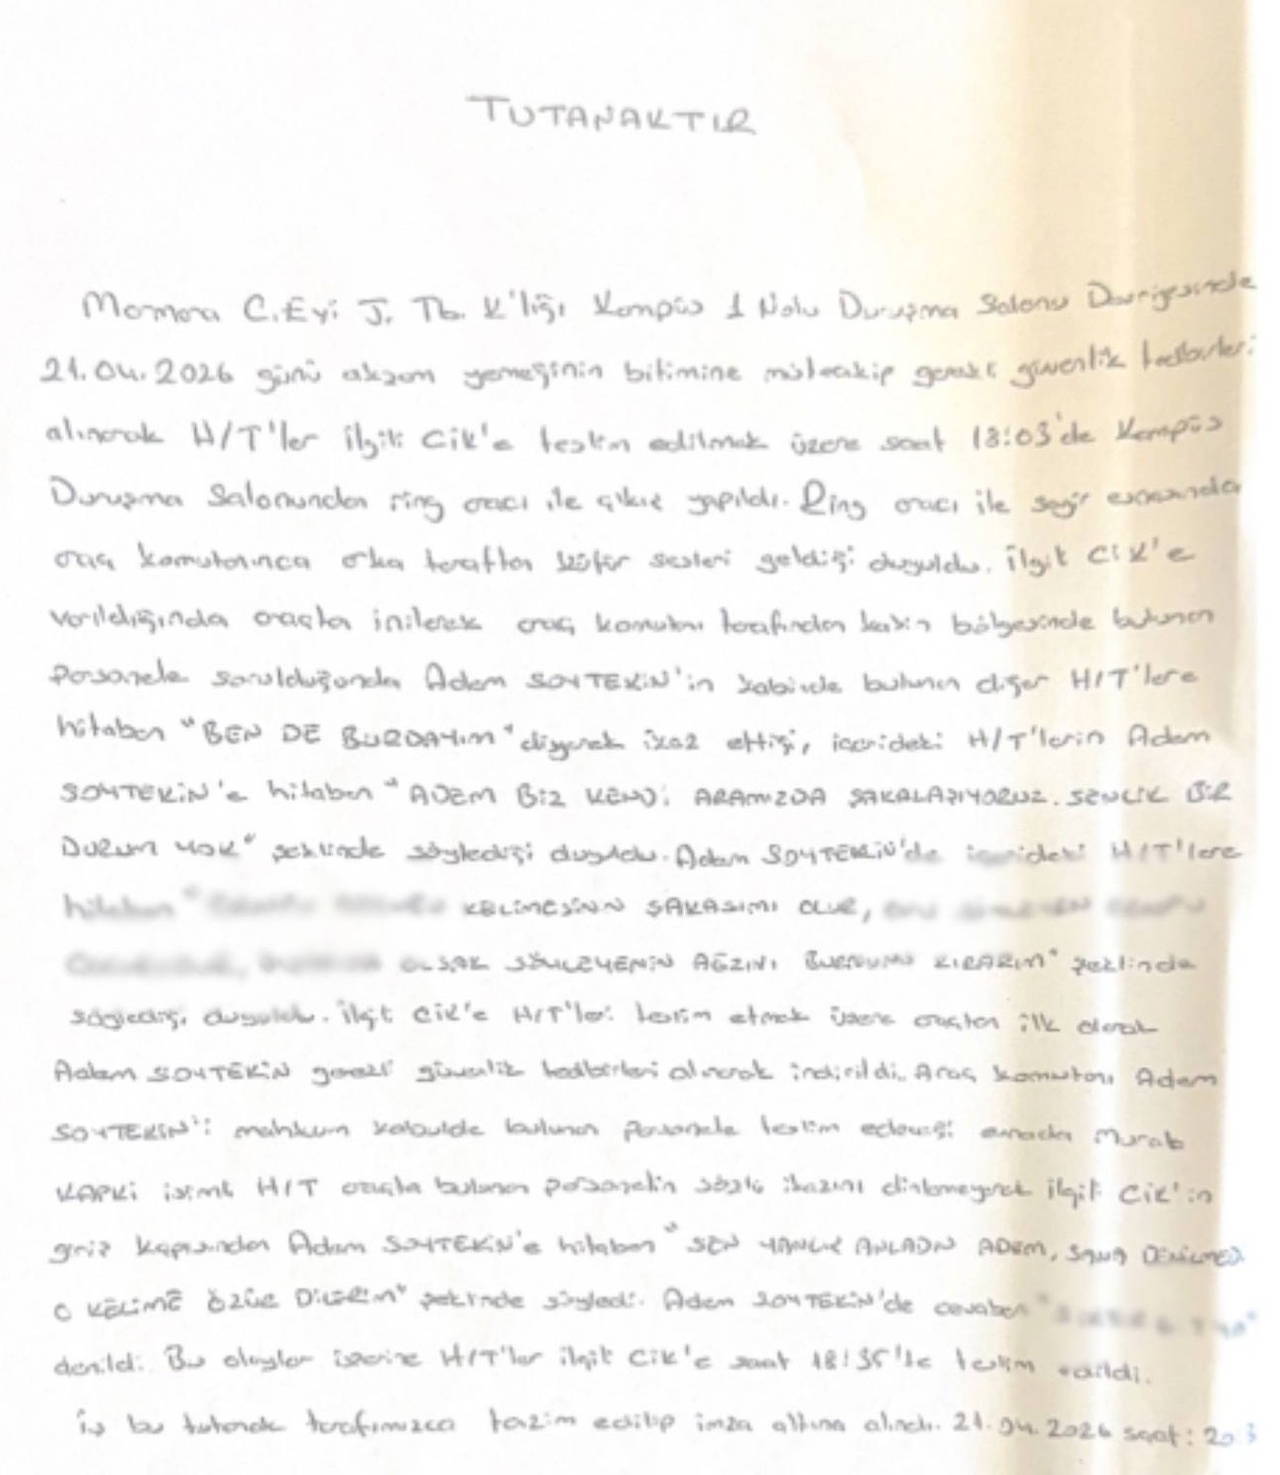 TUTANAKTIR
Marmara C.Evi J. Tb. K'lığı Kampüs 1 Nolu Duruşma Salonu Devriyesinde
21.04.2026 günü akşam yemeğinin bitimine müteakip gerekli güvenlik tedbirleri
alınarak H/T'ler ilgili CİK'e teslim edilmek üzere saat 18:03'de Kampüs
Duruşma Salonundan ring aracı ile çıkış yapıldı. Ring aracı ile seyir esnasında
araç komutanınca arka taraftan küfür sesleri geldiği duyuldu. İlgili CİK'e
varıldığında araçtan inilerek araç komutanı tarafından kabin bölgesinde bulunan
personele sorulduğunda Adem SOYTEKİN'in kabinde bulunan diğer H/T'lere
hitaben "BEN DE BURDAYIM" diyerek ikaz ettiği, içerideki H/T'lerin Adem
SOYTEKİN'e hitaben "ADEM BİZ KENDİ ARAMIZDA ŞAKALAŞIYORUZ. SENLİK BİR
DURUM YOK" şeklinde söylediği duyuldu. Adem SOYTEKİN'de içerideki H/T'lere
hitaben " KELİMESİNN ŞAKASIMI OLUR,
OLSAK SÖYLEYENİN AĞZINI BURNUNU KIRARIM" şeklinde
söylediği duyuldu. İlgili CİK'e H/T'leri teslim etmek üzere araçtan ilk olarak
Adem SOYTEKİN gerekli güvenlik tedbirleri alınarak indirildi. Araç komutanı Adem
SOYTEKİN'i mahkum kabulde bulunan personele teslim edeceği esnada Murat
KAPKİ isimli H/T araçta bulunan personelin sözlü ikazını dinlemeyerek ilgili CİK'in
giriş kapısından Adem SOYTEKİN'e hitaben "SEN YANLIŞ ANLADIN ADEM, SANA DENİLMEDİ
O KELİME ÖZÜR DİLERİM" şeklinde söyledi. Adem SOYTEKİN'de cevaben "
denildi. Bu olaylar üzerine H/T'ler ilgili CİK'e saat 18:35'te teslim edildi.
İş bu tutanak tarafımızca tazim edilip imza altına alındı. 21.04.2026 saat: 20.3